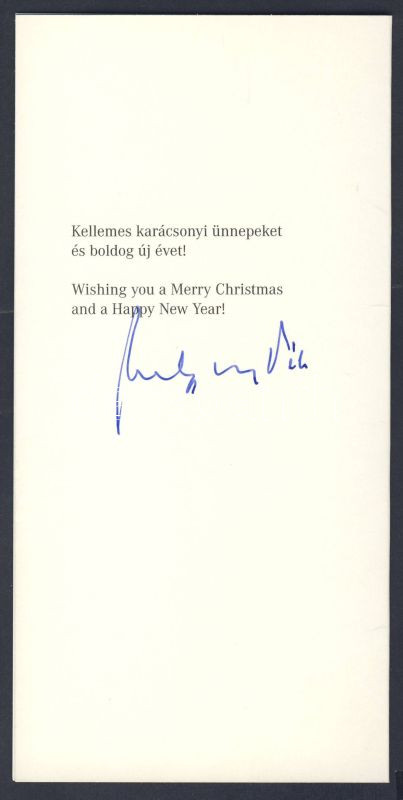 Kellemes karácsonyi ünnepeket
és boldog új évet!
Wishing you a Merry Christmas
and a Happy New Year!